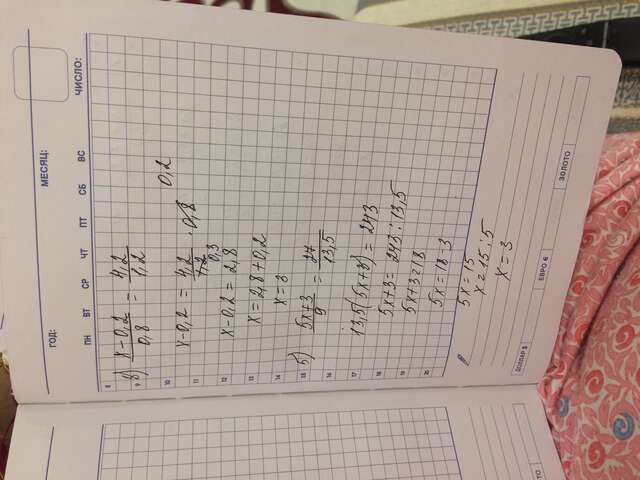 ГОД: МЕСЯЦ:
ПН ВТ СР ЧТ ПТ СБ ВС ЧИСЛО:
8
9
10
11
12
13
14
15
16
17
18
19
20
8) (x-0,2)/0,8 = 4,2/1,2
0,2
x-0,2 = 4,2/1,2 · 0,8
0,3
x-0,2 = 2,8
x = 2,8+0,2
x = 3
5) (5x+3)/9 = 27/13,5
13,5(5x+3) = 243
5x+3 = 243 : 13,5
5x+3 = 18
5x = 18-3
5x = 15
x = 15 : 5
x = 3
ДОЛЛАР $
ЕВРО €
ЗОЛОТО